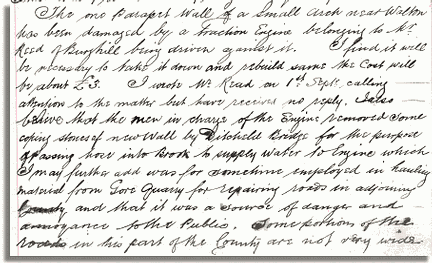 The one Parapet Wall of a Small Arch near Walton
has been damaged by a traction Engine belonging to Mr.
Read of Burghill being driven against it. I find it will
be necessary to take it down and rebuild same the Cost will
be about £3. I wrote Mr. Read on 1st Sept. calling
attention to the matter but have received no reply. I also
believe that the men in charge of the Engine removed some
coping stones of new Wall by Ditchfield Bridge for the purpose
of passing hose into Brook to supply water to Engine which
I may further add was for sometime employed in hauling
material from Gore Quarry for repairing roads in adjoining
and that it was a source of danger and
annoyance to the Public. Some portions of the
roads in this part of the County are not very wide